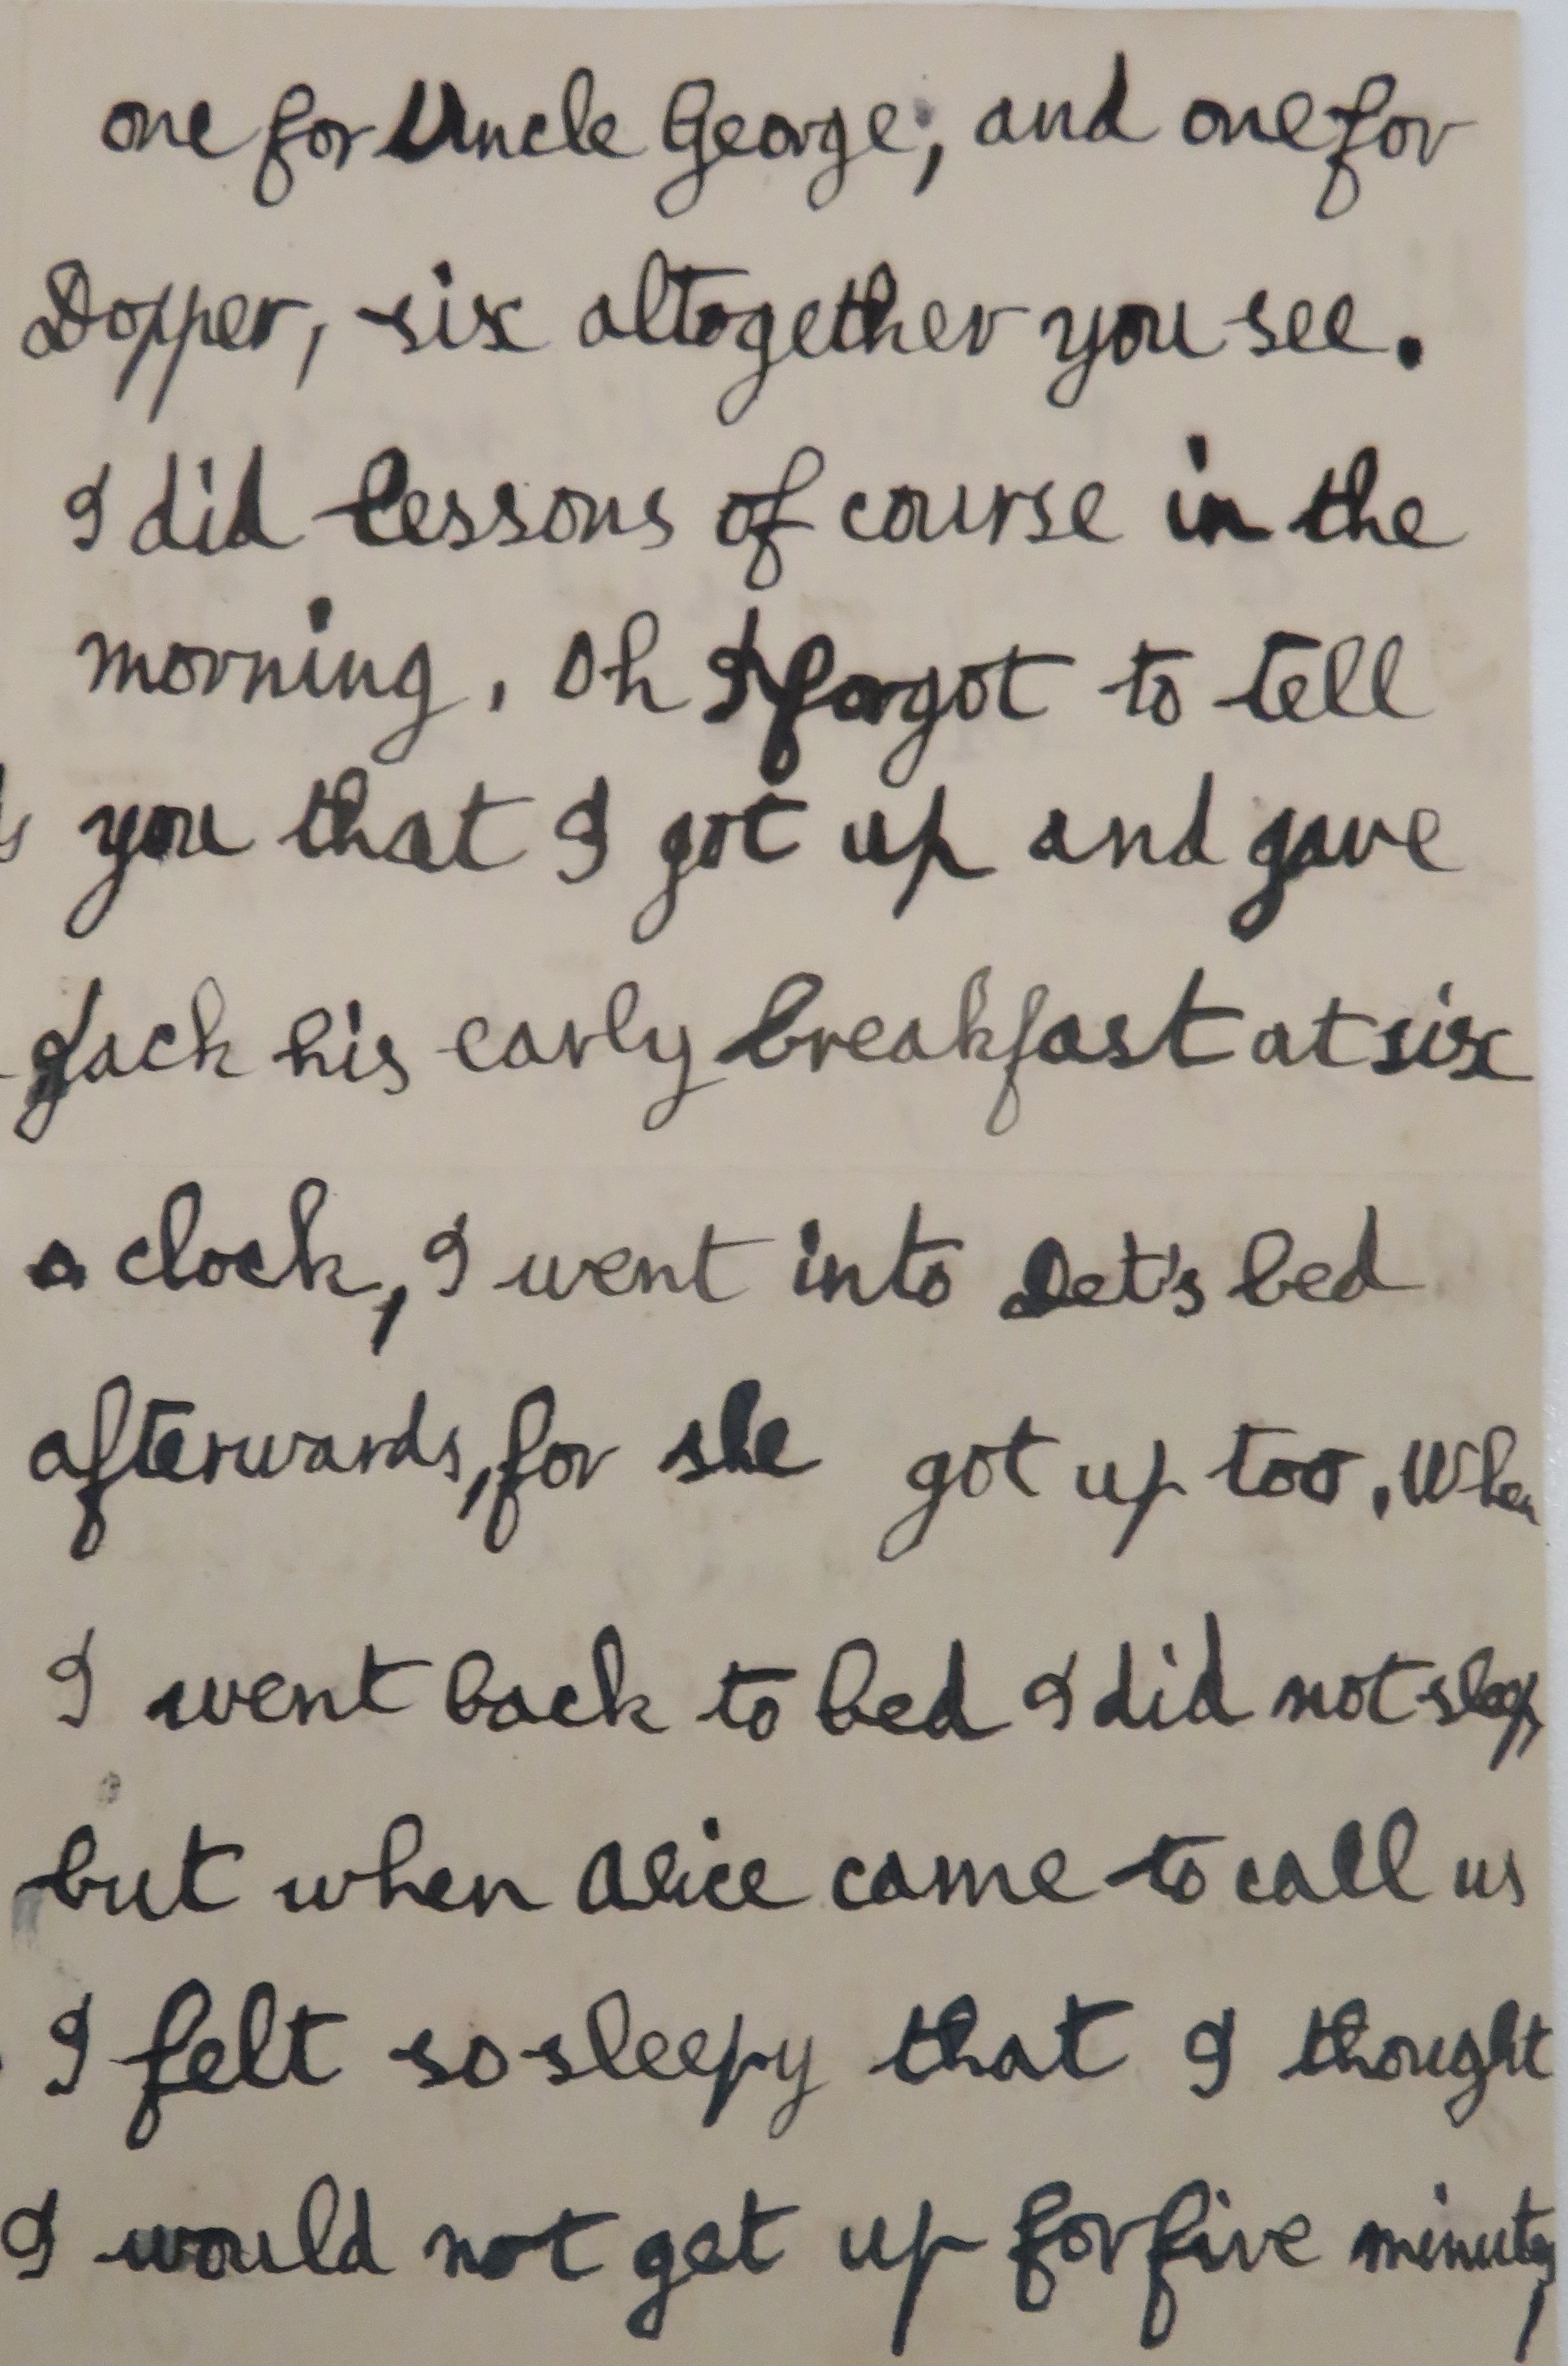 one for Uncle George, and one for
Dopper, six altogether you see.
I did lessons of course in the
morning. Oh I forgot to tell
you that I got up and gave
Jack his early breakfast at six
o clock, I went into Det's bed
afterwards, for she got up too. When
I went back to bed I did not sleep,
but when Alice came to call us
I felt so sleepy that I thought
I would not get up for five minutes,